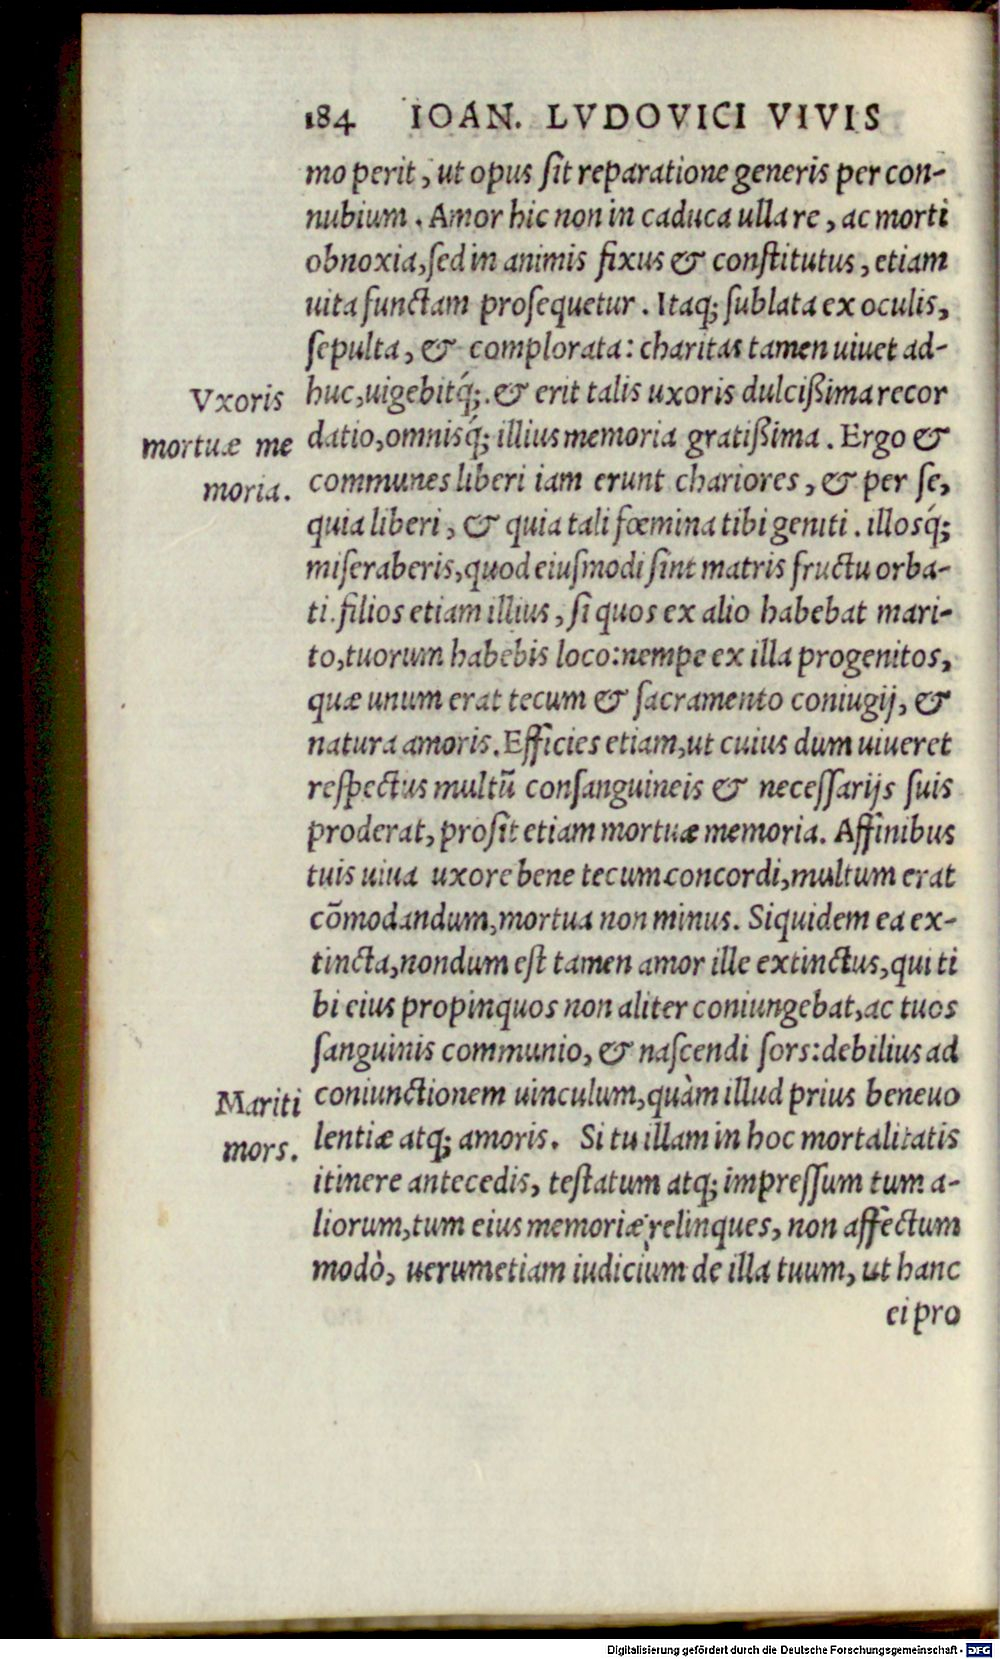 184 IOAN. LVDOVICI VIVIS
mo perit, ut opus ſit reparatione generis per con-
nubium. Amor hic non in caduca ulla re, ac morti
obnoxia, ſed in animis fixus & conſtitutus, etiam
uita functam proſequetur. Itaq; ſublata ex oculis,
ſepulta, & complorata: charitas tamen uiuet ad-
huc, uigebitq́;. & erit talis uxoris dulciſsima recor
datio, omnisq́; illius memoria gratiſsima. Ergo &
communes liberi iam erunt chariores, & per ſe,
quia liberi, & quia tali fœmina tibi geniti. illosq́;
miſeraberis, quod eiuſmodi ſint matris fructu orba-
ti. filios etiam illius, ſi quos ex alio habebat mari-
to, tuorum habebis loco: nempe ex illa progenitos,
quæ unum erat tecum & ſacramento coniugij, &
natura amoris. Efficies etiam, ut cuius dum uiueret
reſpectus multũ conſanguineis & neceſſarijs ſuis
proderat, proſit etiam mortuæ memoria. Affinibus
tuis uiua uxore bene tecum concordi, multum erat
cõmodandum, mortua non minus. Siquidem ea ex-
tincta, nondum eſt tamen amor ille extinctus, qui ti
bi eius propinquos non aliter coniungebat, ac tuos
ſanguinis communio, & naſcendi ſors: debilius ad
coniunctionem uinculum, quàm illud prius beneuo
lentiæ atq; amoris. Si tu illam in hoc mortalitatis
itinere antecedis, teſtatum atq; impreſſum tum a-
liorum, tum eius memoriæ relinques, non affectum
modò, uerumetiam iudicium de illa tuum, ut hanc
ei pro
Vxoris
mortuæ me
moria.
Mariti
mors.
Digitalisierung gefördert durch die Deutsche Forschungsgemeinschaft - DFG